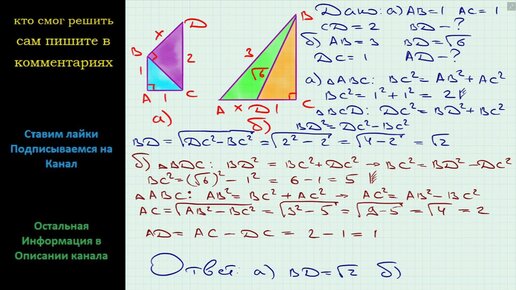 кто смог решить
сам пишите в
комментариях
Ставим лайки
Подписываемся на
Канал
Остальная
Информация в
Описании канала
D
x
B
2
1
A 1 C
а)
B
3
√6
A x D 1 C
б)
Дано: а) AB=1 AC=1
CD=2 BD-?
б) AB=3 BD=√6
DC=1 AD-?
а) ΔABC: BC²=AB²+AC²
BC²=1²+1²=2
ΔBCD: DC²=BD²+BC²
BD²=DC²-BC²
BD=√DC²-BC²=√2²-2=√4-2=√2
б) ΔBDC: BD²=BC²+DC² → BC²=BD²-DC²
BC²=(√6)²-1²=6-1=5
ΔABC: AB²=BC²+AC² → AC²=AB²-BC²
AC=√AB²-BC²=√3²-5=√9-5=√4=2
AD=AC-DC=2-1=1
Ответ: а) BD=√2 б)